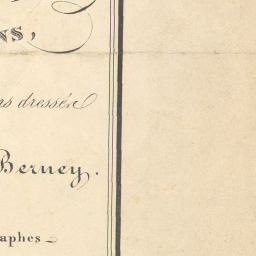 NS,
ns dressée
Berney.
aphes